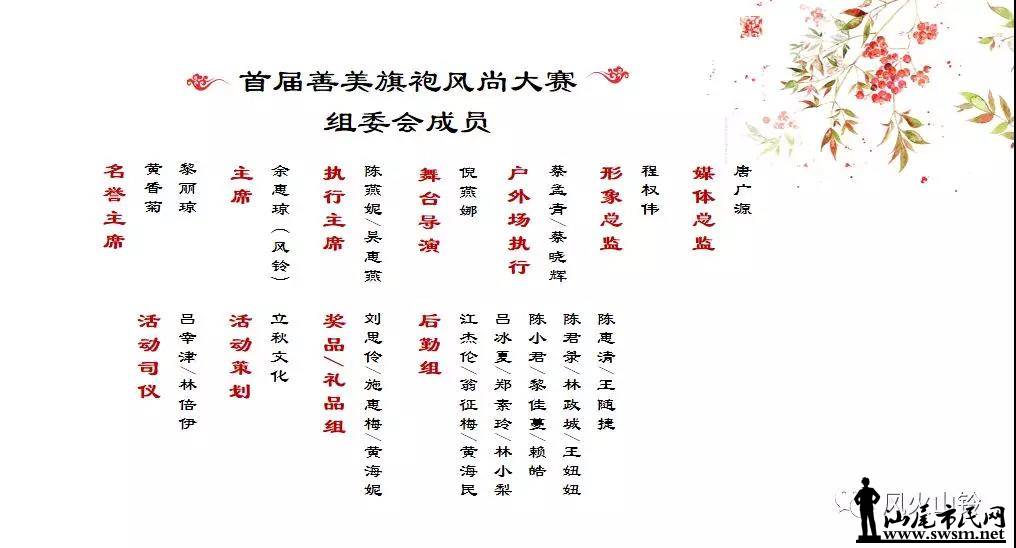 首届善美旗袍风尚大赛
组委会成员
名誉主席
黄香菊
黎丽琼
主席
余惠琼（风铃）
执行主席
陈燕妮/吴惠燕
舞台导演
倪燕娜
户外场执行
蔡孟青/蔡晓辉
形象总监
程权伟
媒体总监
唐广源
活动司仪
吕幸津/林倍伊
活动策划
立秋文化
奖品/礼品组
刘思伶/施惠梅/黄海妮
后勤组
江杰伦/翁征梅/黄海民
吕冰夏/郑素玲/林小梨
陈小君/黎佳蔓/赖皓
陈君录/林政城/王妞妞
陈惠清/王随捷
风火山铃
汕尾市民网
www.swsm.net